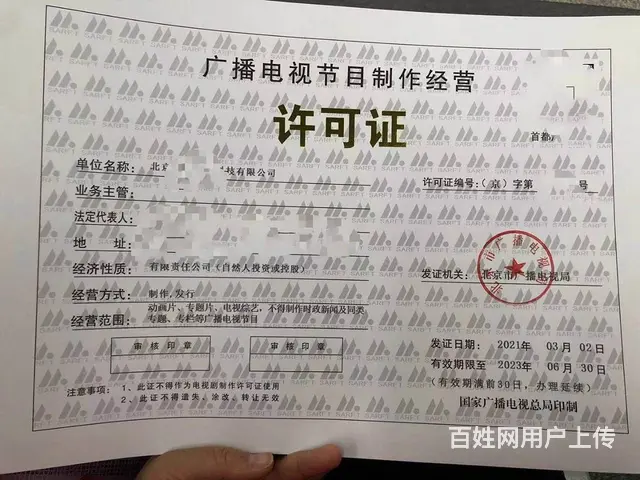 广播电视节目制作经营
许可证
首都
单位名称： 北京 技有限公司
许可证编号：（京）字第 号
业务主管：
法定代表人：
地 址：
经济性质： 有限责任公司（自然人投资或控股）
发证机关： 北京市广播电视局
经营方式： 制作，发行
经营范围： 动画片、专题片、电视综艺，不得制作时政新闻及同类
专题、专栏等广播电视节目
审核印章 审核印章
发证日期： 2021年 03月 02日
有效期限至 2023年 06月 30日
（有效期满前30日，办理延续）
注意事项： 1、此证不得作为电视剧制作许可证使用
2、此证不得遗失、涂改、转让无效
国家广播电视总局印制
百姓网用户上传